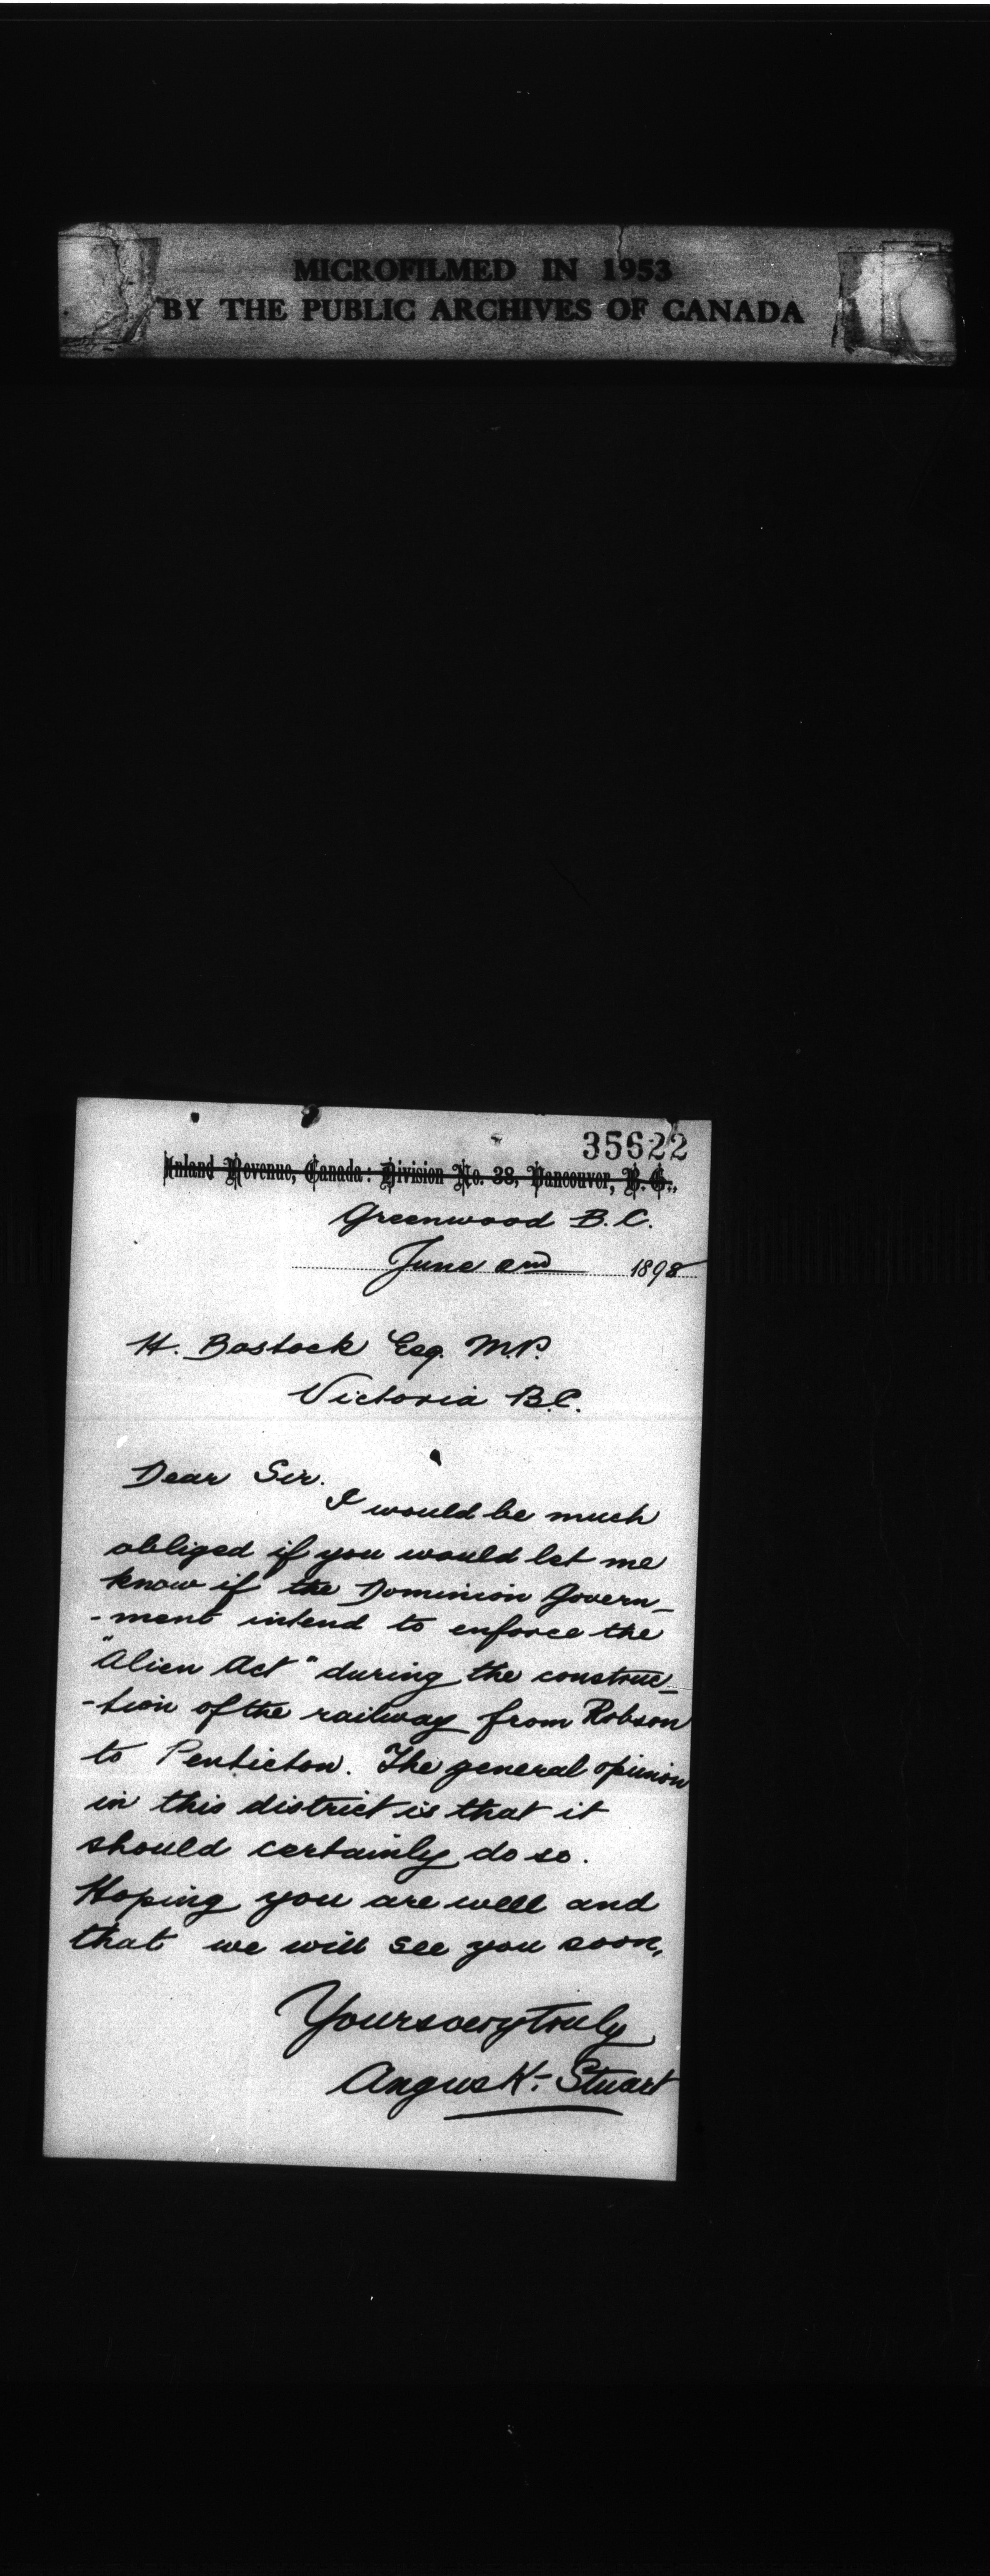 MICROFILMED IN 1953
BY THE PUBLIC ARCHIVES OF CANADA
35622
Inland Revenue, Canada: Division No. 38, Vancouver, B.C.,
Greenwood B.C.
June 2nd 1898
H. Bostock Esq. M.P.
Victoria B.C.
Dear Sir.
I would be much
obliged if you would let me
know if the Dominion Govern-
-ment intend to enforce the
"Alien Act" during the construc-
-tion of the railway from Robson
to Penticton. The general opinion
in this district is that it
should certainly do so.
Hoping you are well and
that we will see you soon,
Yours very truly
Angus K. Stuart